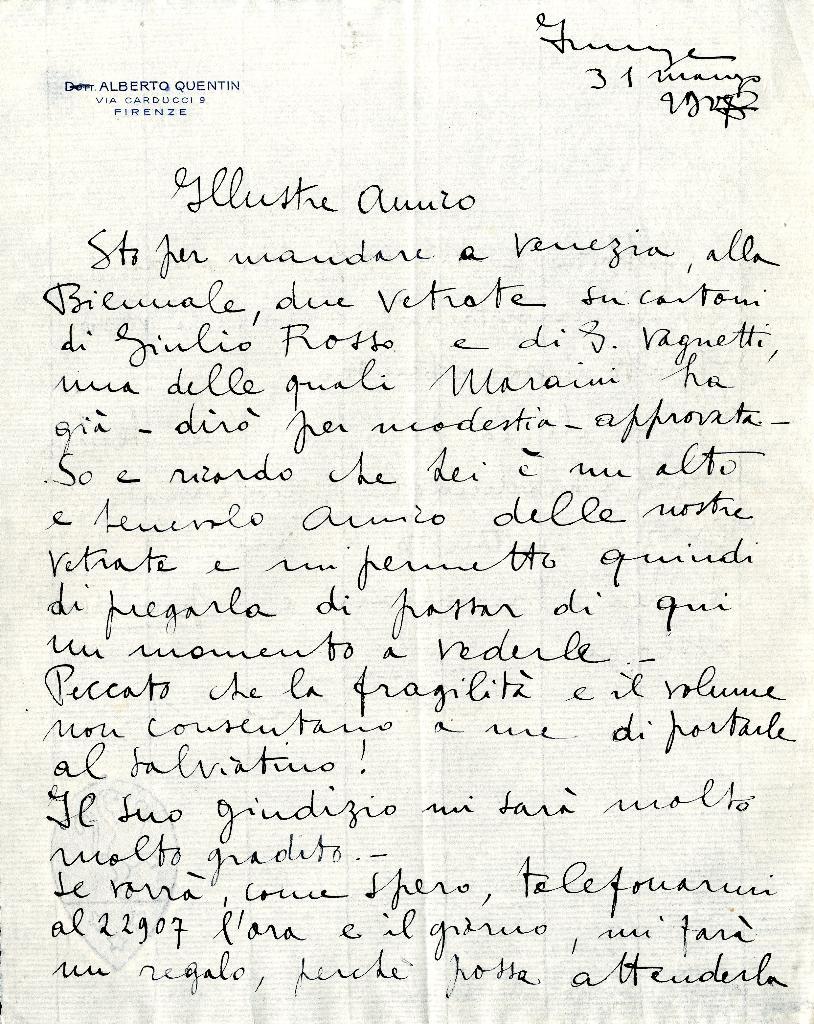 Firenze
31 marzo
DOTT. ALBERTO QUENTIN
VIA CARDUCCI 9
FIRENZE
Illustre Amico
Sto per mandare a Venezia, alla
Biennale, due vetrate su cartoni
di Giulio Rosso e di G. Vagnetti,
una delle quali Maraini ha
già - dirò per modestia - approvata -
So e ricordo che Lei è un alto
e benevolo Amico delle nostre
vetrate e mi permetto quindi
di pregarla di passar di qui
un momento a vederle -
Peccato che la fragilità e il volume
non consentano a me di portarle
al Salviatino!
Il suo giudizio mi sarà molto
molto gradito. -
Se vorrà, come spero, telefonarmi
al 22907 l'ora e il giorno, mi farà
un regalo, perché possa attenderla